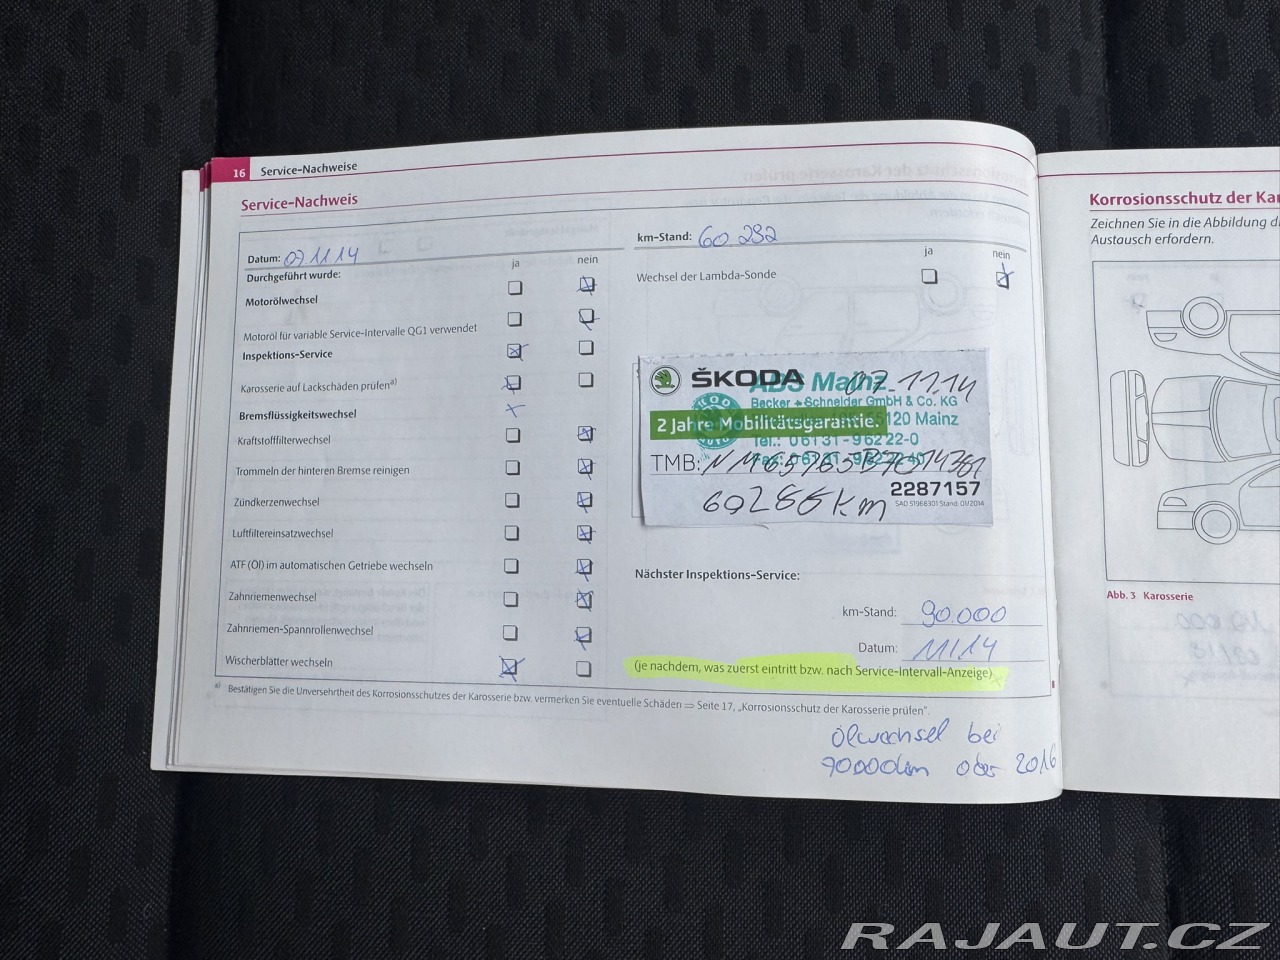 16 Service-Nachweise
Service-Nachweis
Datum: 07 11 14
km-Stand: 60 292
Durchgeführt wurde:
ja nein
ja nein
Wechsel der Lambda-Sonde
Motorölwechsel
Motoröl für variable Service-Intervalle QG1 verwendet
Inspektions-Service
Karosserie auf Lackschäden prüfen a)
Bremsflüssigkeitswechsel
Kraftstofffilterwechsel
Trommeln der hinteren Bremse reinigen
Zündkerzenwechsel
Luftfiltereinsatzwechsel
ATF (Öl) im automatischen Getriebe wechseln
Zahnriemenwechsel
Zahnriemen-Spannrollenwechsel
Wischerblätter wechseln
ŠKODA
ABS Mainz
07.11.14
Becker + Schneider GmbH & Co. KG
2 Jahre Mobilitätsgarantie.
55120 Mainz
Tel.: 0 61 31 - 9 62 22-0
TMB:
2287157
60286 km
SAD 51968301 Stand: 01/2014
Nächster Inspektions-Service:
km-Stand: 90.000
Datum: 11/14
(je nachdem, was zuerst eintritt bzw. nach Service-Intervall-Anzeige)
a) Bestätigen Sie die Unversehrtheit des Korrosionsschutzes der Karosserie bzw. vermerken Sie eventuelle Schäden ⇒ Seite 17, „Korrosionsschutz der Karosserie prüfen".
Ölwechsel bei
70000km oder 2016
Korrosionsschutz der Kar
Zeichnen Sie in die Abbildung d
Austausch erfordern.
Abb. 3 Karosserie
RAJAUT.CZ